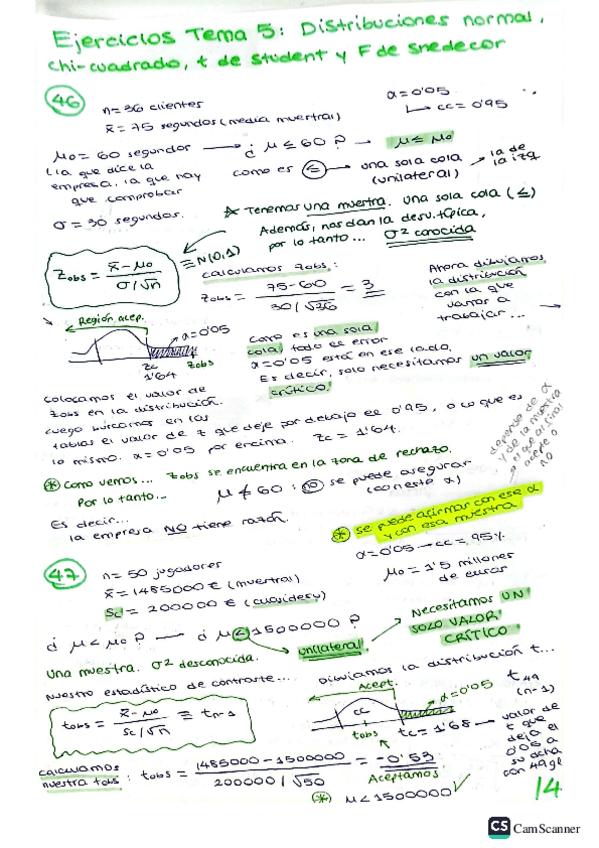 Ejercicios Tema 5: Distribuciones normal,
chi-cuadrado, t de Student y F de Snedecor
46
n=36 clientes
x̄ = 75 segundos (media muestral)
α=0'05
↳ cc=0'95
μ₀= 60 segundos → ¿ μ ≤ 60 ? → μ ≤ μ₀
(la que dice la
empresa, la que hay
que comprobar
como es ≤ → una sola cola
(unilateral)
→ la de
la izq
σ = 30 segundos.
* Tenemos una muestra. Una sola cola (≤)
Además, nos dan la desv. típica,
por lo tanto... σ² conocida
Zobs = x̄-μ₀ / σ/√n ≡ N(0,1)
calculamos Zobs:
Zobs = 75-60 / 30/√36 = 3
Ahora dibujamos
la distribución
con la que
vamos a
trabajar... →
Región acep.
α=0'05
Zc
1'64
Zobs
Como es una sola
cola, todo es error
α=0'05 está en ese lado.
Es decir, solo necesitamos un valor
crítico!
Colocamos el valor de
Zobs en la distribución.
Luego buscamos en las
tablas el valor de z que deje por debajo el 0'95, o lo que es
lo mismo. α=0'05 por encima. Zc = 1'64.
depende de α
y de la muestra
el que al final
acepte o
no
* Como vemos... Zobs se encuentra en la zona de rechazo.
Por lo tanto...
μ ≰ 60 : no se puede asegurar
(con este α)
Es decir...
la empresa NO tiene razón.
* Se puede afirmar con ese α
y con esa muestra
47
n= 50 jugadores
x̄ = 1485000 € (muestral)
Sc = 200000 € (cuasidesv)
α=0'05 → cc = 95%
μ₀= 1'5 millones
de euros
¿ μ < μ₀ ? → ¿ μ < 1500000 ?
unilateral
Necesitamos UN
SOLO VALOR
CRÍTICO!
Una muestra. σ² desconocida.
Nuestro estadístico de contraste...
Dibujamos la distribución t...
tobs = x̄-μ₀ / Sc/√n ≡ tn-1
Acept.
α=0'05
t49
(n-1)
cc
tobs
tc= 1'68 → valor de
t que
deja el
0'05 a
su dcha
con 49 gl
calculamos
nuestra tobs : tobs = 1485000 - 1500000 / 200000/√50 = -0'53
Aceptamos
* μ<1500000 ✓
14
CS CamScanner